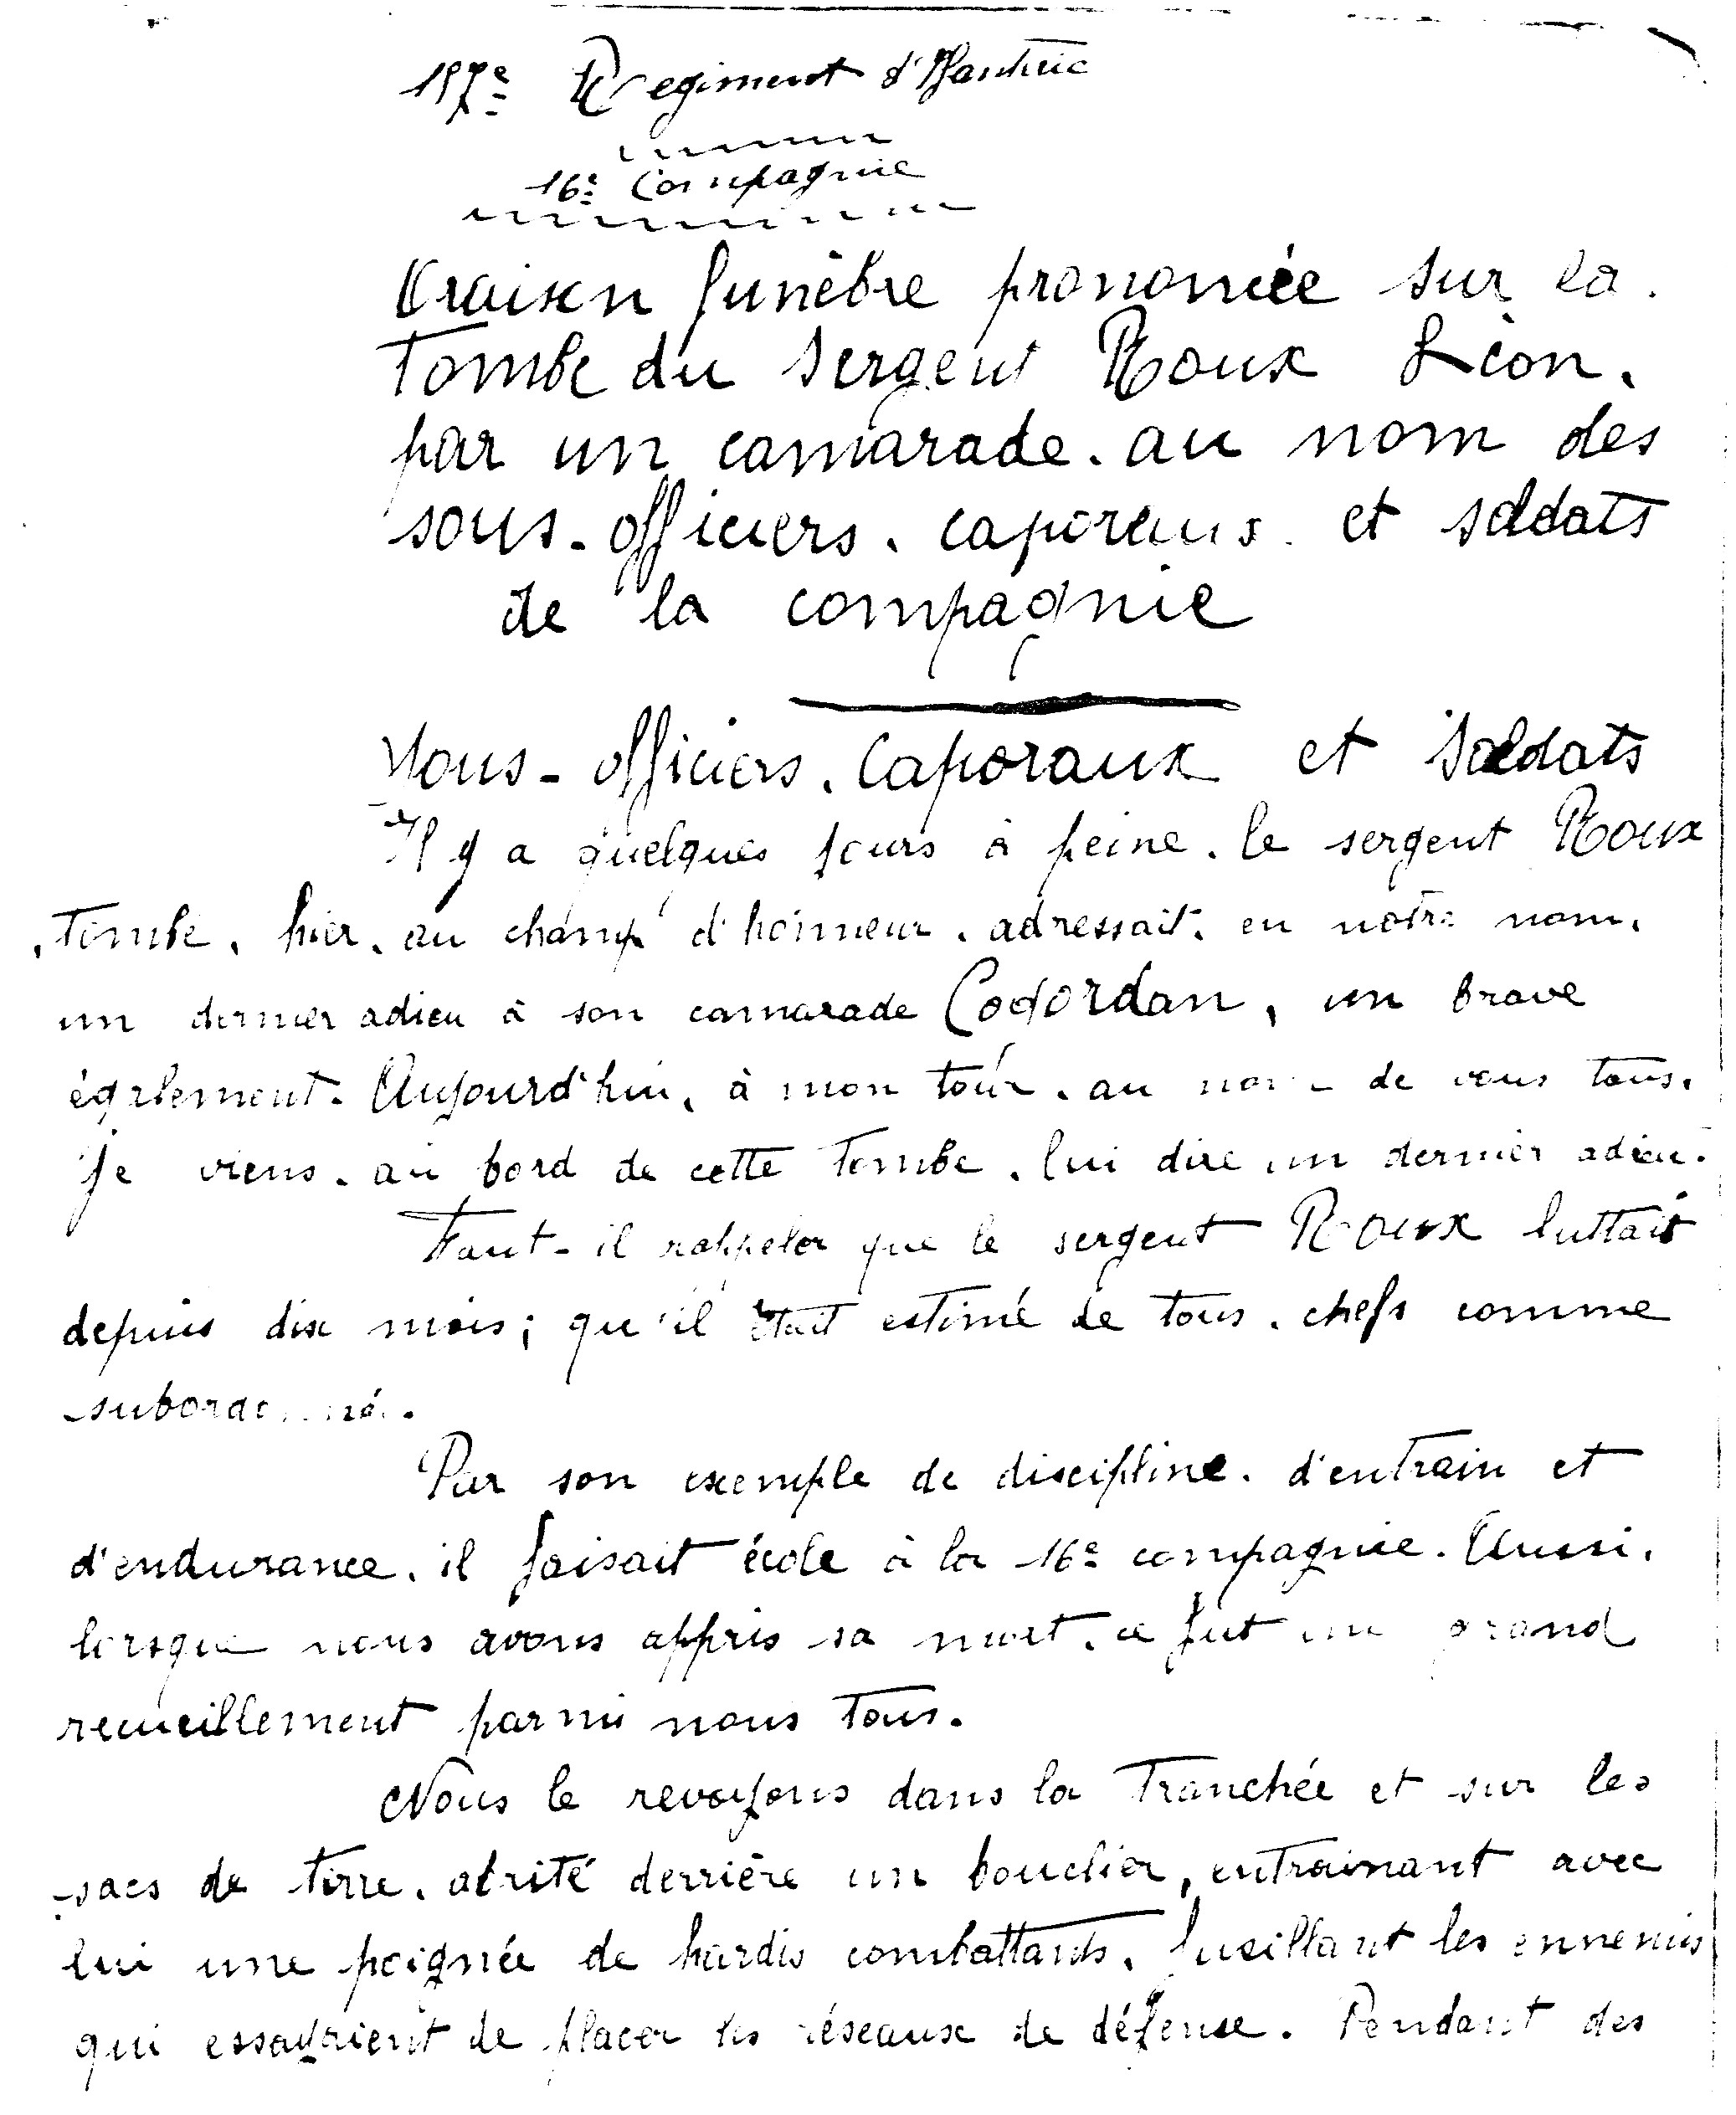 157e Regiment d'Infanterie
16e Compagnie
Oraison funèbre prononcée sur la
Tombe du Sergent Roux Léon,
par un camarade, au nom des
sous-officiers, caporaux et soldats
de la compagnie
Sous-officiers, Caporaux et Soldats
Il y a quelques jours à peine, le sergent Roux
tombé, hier, au champ d'honneur, adressait, en notre nom,
un dernier adieu à son camarade Codordan, un brave
également. Aujourd'hui, à mon tour, au nom de vous tous,
je viens, au bord de cette tombe, lui dire un dernier adieu.
Faut-il rappeler que le sergent Roux luttait
depuis dix mois; qu'il était estimé de tous, chefs comme
subordonnés.
Par son exemple de discipline, d'entrain et
d'endurance, il faisait école à la 16e compagnie. Aussi,
lorsque nous avons appris sa mort, ce fut un grand
recueillement parmi nous tous.
Nous le revoyons dans la Tranchée et sur les
sacs de terre, abrité derrière un bouclier, entrainant avec
lui une poignée de hardis combattants, fusillant les ennemis
qui essayaient de placer les réseaux de défense. Pendant des